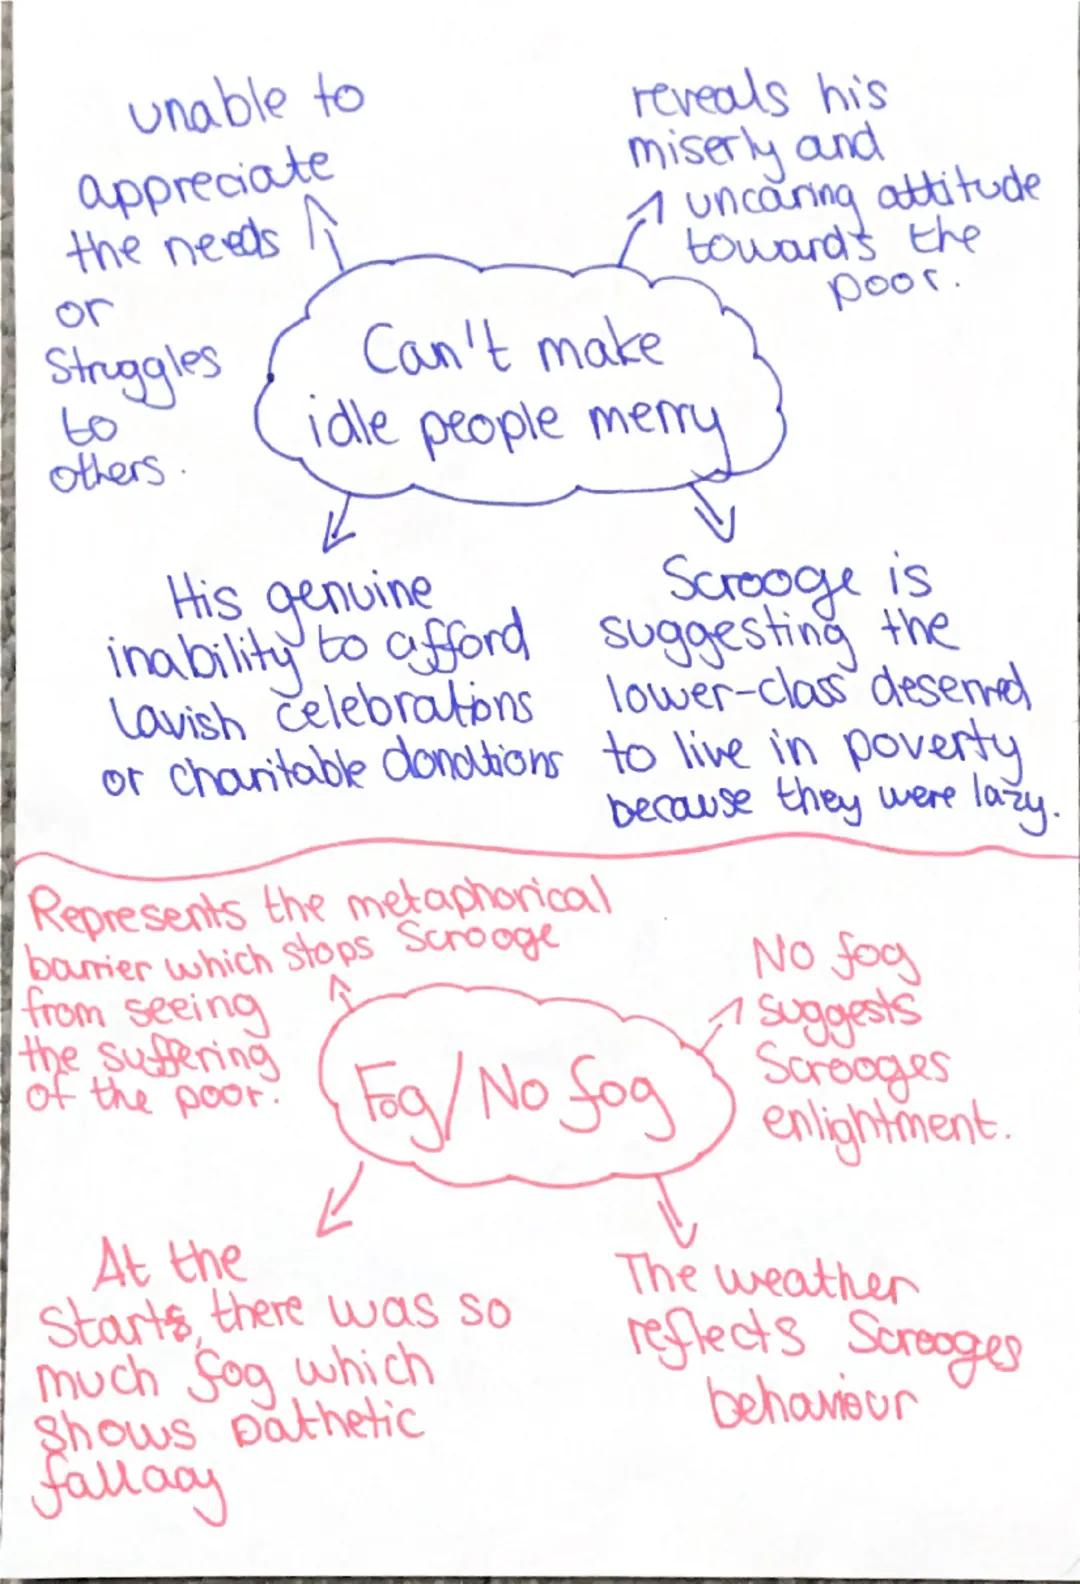 unable to
appreciate
the needs
or
Struggles
to
others.
reveals his
miserly and
uncaring attitude
towards the
poor.
Can't make
idle people merry
His genuine
inability to afford
lavish celebrations
or charitable donations
Scrooge is
suggesting the
lower-class deserved
to live in poverty
because they were lazy.
Represents the metaphorical
barrier which stops Scrooge
from seeing
the suffering
of the poor.
No fog
suggests
Scrooges
enlightment.
Fog/No fog
At the
Starts, there was so
much fog which
shows pathetic
fallacy
The weather
reflects Scrooges
behaviour